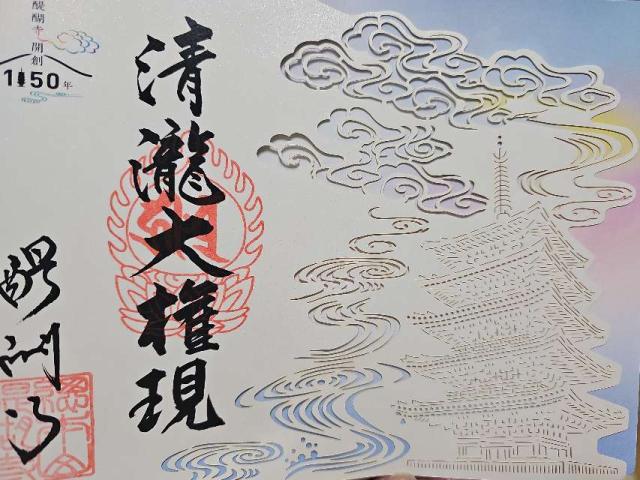 醍醐寺開創
1150年
清瀧大権現
醍醐寺